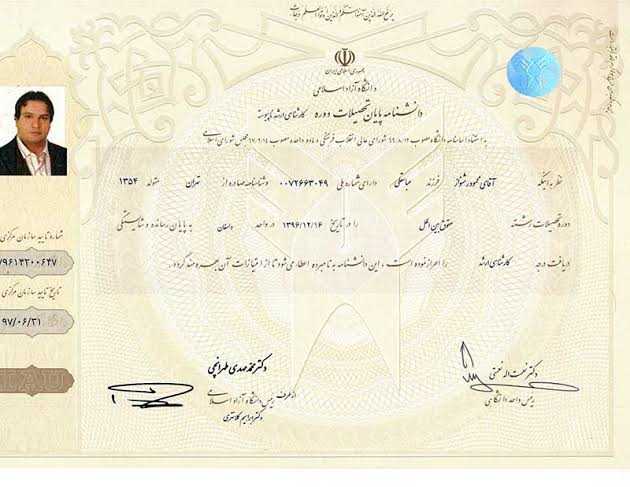 جمهوری اسلامی ایران
دانشگاه آزاد اسلامی
دانشنامه پایان تحصیلات دوره کارشناسی ارشد ناپیوسته
به استناد اساسنامه دانشگاه مصوب شورای عالی انقلاب فرهنگی و ماده واحده مصوب مجلس شورای اسلامی
نظر به اینکه آقای محمود رشنواز فرزند عباسعلی دارای شماره ملی ۰۰۷۲۶۶۳۰۴۹ و شناسنامه صادره از تهران متولد ۱۳۵۴
دوره تحصیلات رشته حقوق بین الملل را در تاریخ ۱۳۹۶/۱۲/۱۶ در واحد دامغان به پایان رسانده و شایستگی
دریافت درجه کارشناسی ارشد را احراز نموده است، این دانشنامه به نامبرده اعطا می شود تا از امتیازات آن بهره مند گردد.
شماره تایید سازمان مرکزی
تاریخ تایید سازمان مرکزی
۹۷/۰۶/۳۱
دکتر نعمت اله نعمتی
رئیس واحد دانشگاهی
دکتر محمد مهدی طهرانچی
رئیس دانشگاه آزاد اسلامی
از طرف
دکتر ابراهیم کلانتری